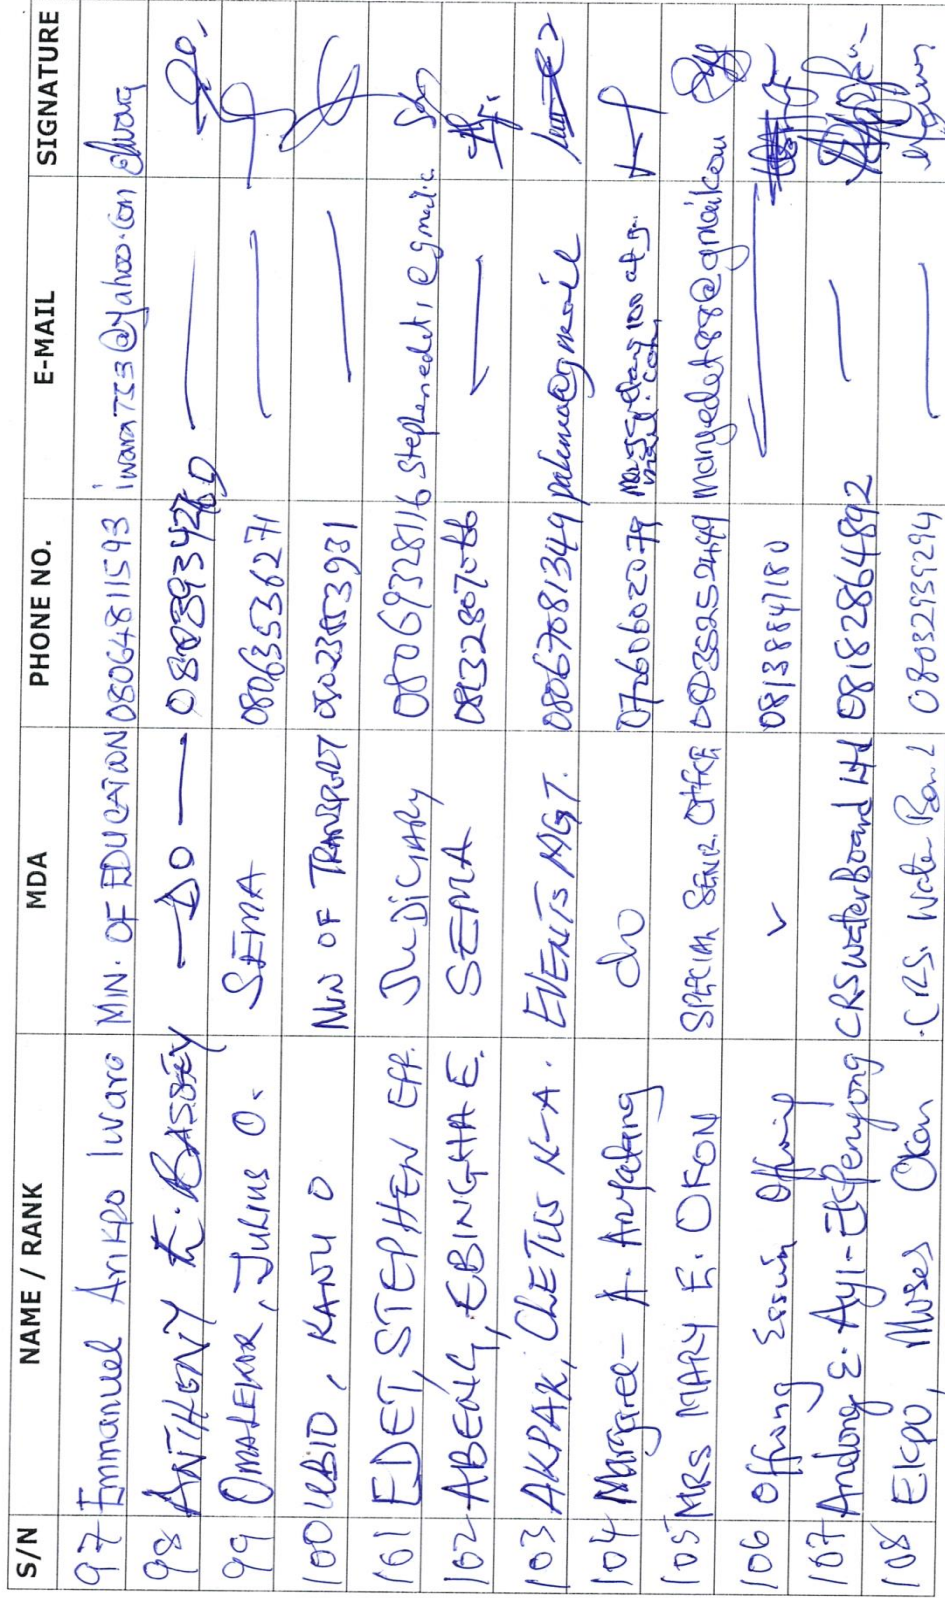 S/N NAME / RANK MDA PHONE NO. E-MAIL SIGNATURE
97 Emmanuel Arikpo Iwara MIN. OF EDUCATION 08064811593 iwara753@yahoo.com
98 ANTHONY E. BASSEY —DO—
99 OMALEKOR, JULIUS O. SEMA 08063536271 —
100 UBIO, KANU O MIN OF TRANSPORT —
101 EDET, STEPHEN Eff. JUDICIARY 08069328116
102 ABENG, EBINGHA E. SEMA 08132807086 —
103 AKPAK, CLETUS N-A. EVENTS MGT. 08067081349
104 Margaret A. Anyatang do
105 MRS MARY E. OKON SPECIAL SENR. OFFICE
106 Offiong Essien Offiong ✓ 08138847180 —
107 Andong E. Ayi-Ekpenyong CRS Water Board Ltd 08182864892 —
108 Ekpo, Moses Okon CRS. Water Board 08032939294 —